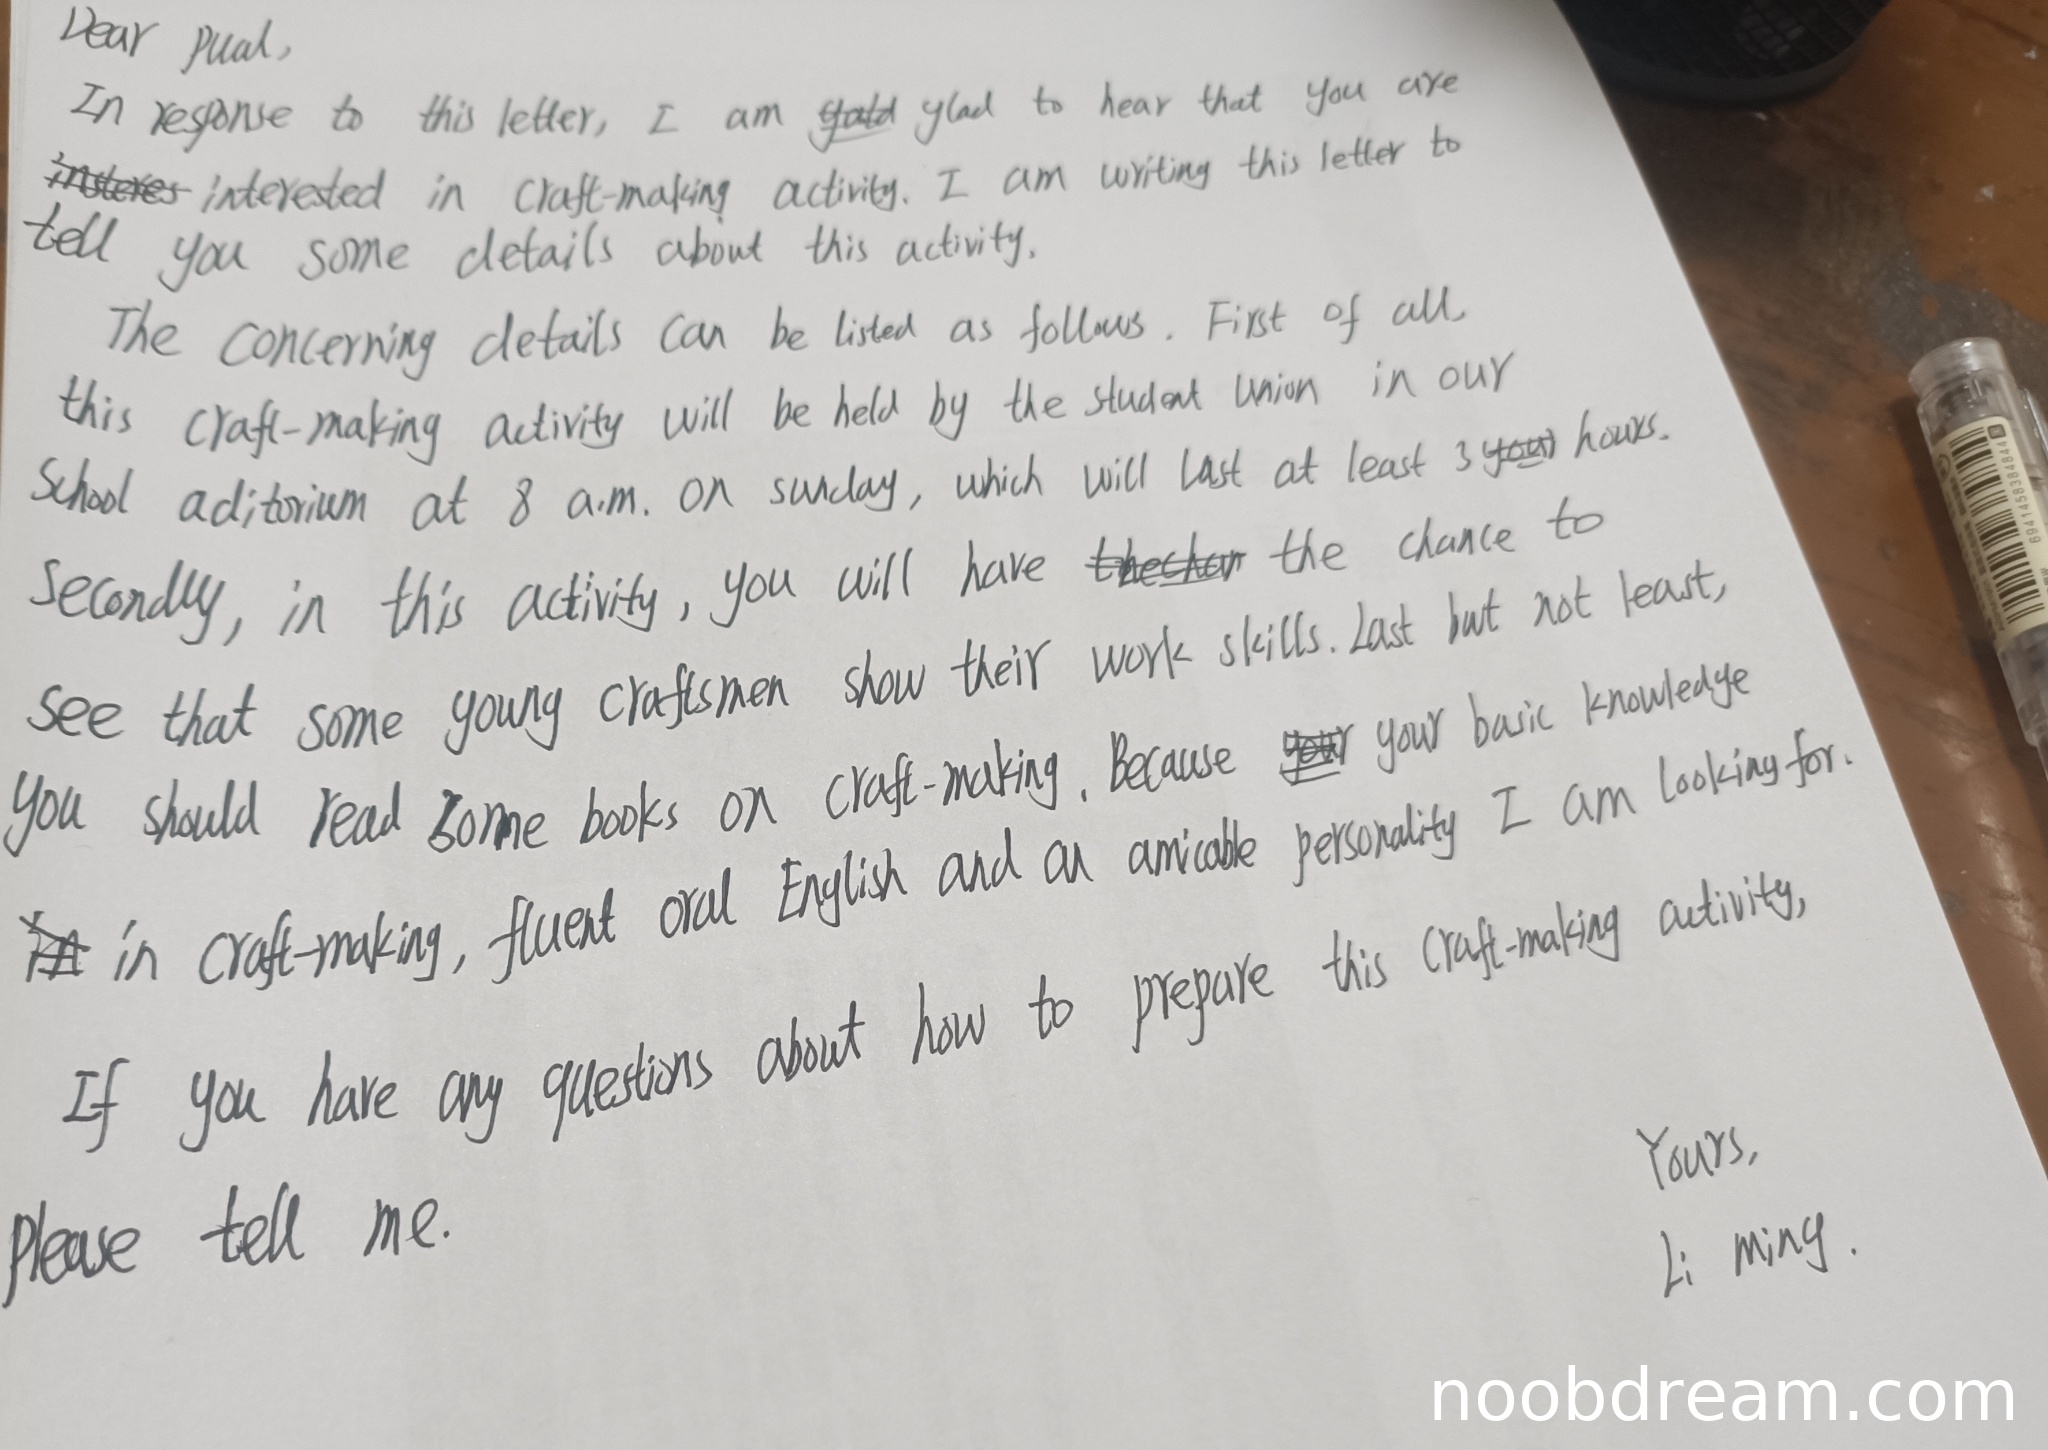 Dear pual,
In response to this letter, I am glad to hear that you are
interested in craft-making activity. I am writing this letter to
tell you some details about this activity.
The concerning details can be listed as follows. First of all,
this craft-making activity will be held by the student union in our
school aditorium at 8 a.m. on sunday, which will last at least 3 hours.
Secondly, in this activity, you will have the chance to
see that some young craftsmen show their work skills. Last but not least,
you should read some books on craft-making. Because your basic knowledge
in craft-making, fluent oral English and an amicable personality I am looking for.
If you have any questions about how to prepare this craft-making activity,
please tell me.
Yours,
Li ming.
6941458384844
noobdream.com